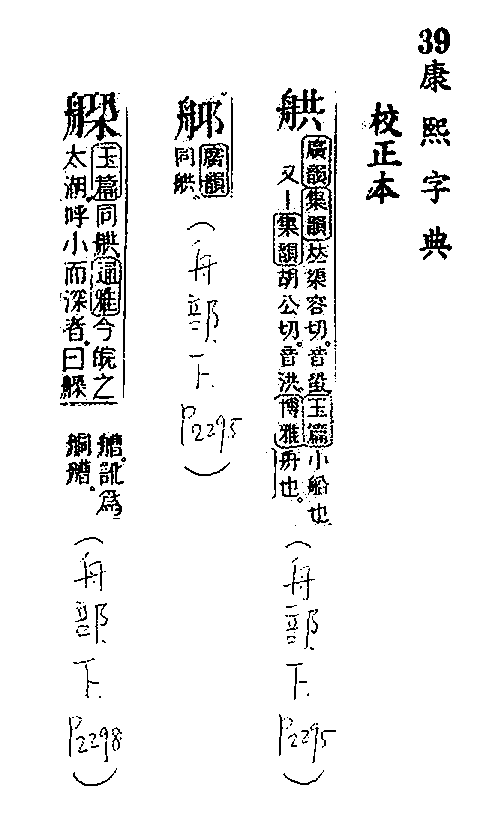 39康熙字典
校正本
舼
廣韻集韻𠀤渠容切。音蛩。玉篇小船也
又｜集韻胡公切。音洪。博雅舟也。
(舟部下P2295)
廣韻
同舼。
(舟部下P2295)
玉篇同舼通雅今皖之
太湖呼小而深者曰艒
艚。訛為
艒艚。
(舟部下P2298)